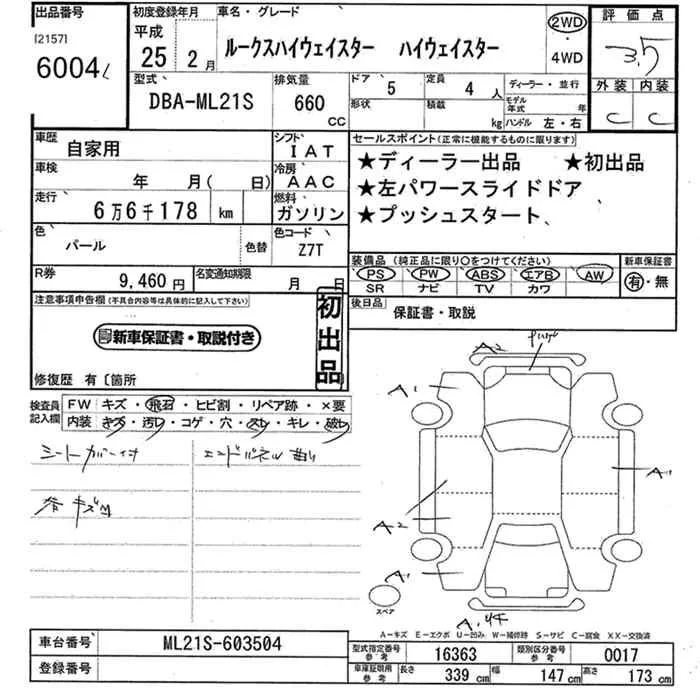 出品番号
[2157]
6004
初度登録年月
平成
25 2月
車名・グレード
ルークスハイウェイスター ハイウェイスター
2WD
・
4WD
評価点
3.5
外装 内装
C C
型式
DBA-ML21S
排気量
660
CC
ドア 5
定員 4 人
形状
積載 kg
ディーラー・並行
モデル年式 年
ハンドル 左・右
車歴
自家用
シフト
IAT
車検
年 月( 日)
冷房
AAC
走行
6万6千178 km
燃料
ガソリン
色
パール
色替
色コード
Z7T
R券
9,460円
名変通知期限
月 日
セールスポイント(正常に機能するものに限ります)
★ディーラー出品 ★初出品
★左パワースライドドア
★プッシュスタート
装備品(純正品に限り○をつけてください)
PS PW ABS エアB AW
SR ナビ TV カワ
新車保証書
有・無
後日品
保証書・取説
注意事項申告欄(不具合内容等は具体的に記入して下さい)
新車保証書・取説付き
初出品
修復歴 有〔箇所
検査員記入欄
FW キズ・飛石・ヒビ割・リペア跡・×要
内装 キズ・汚レ・コゲ・穴・スレ・キレ・破レ
シートカバー付
エンドパネル曲り
各キズM
A2
A1
A1
A2
A1
A1
スペア
A-キズ E-エクボ U-凹み W-補修跡 S-サビ C-腐食 XX-交換済
車台番号
ML21S-603504
登録番号
型式指定番号 参考
16363
類別区分番号 参考
0017
車庫証明用 参考
長さ 339 cm
幅 147 cm
高さ 173 cm